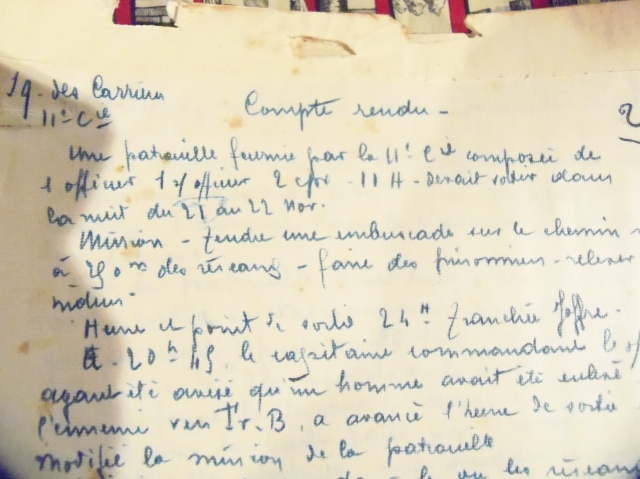 19. des Carrières
11e Cie
Compte rendu -
Une patrouille fournie par la 11e Cie composée de
1 officier 1 s/officier 2 cpx - 11 H - devait sortir dans
la nuit du 21 au 22 Nov.
Mission - tendre une embuscade sur le chemin
à 50m des réseaux - faire des prisonniers - relever
indices
Heure et point de sortie 24H Tranchée Joffre -
A - 20h45, le capitaine commandant le
ayant été avisé qu'un homme avait été enlevé
l'ennemi vers Tr. B, a avancé l'heure de sortie
modifié la mission de la patrouille
les réseaux